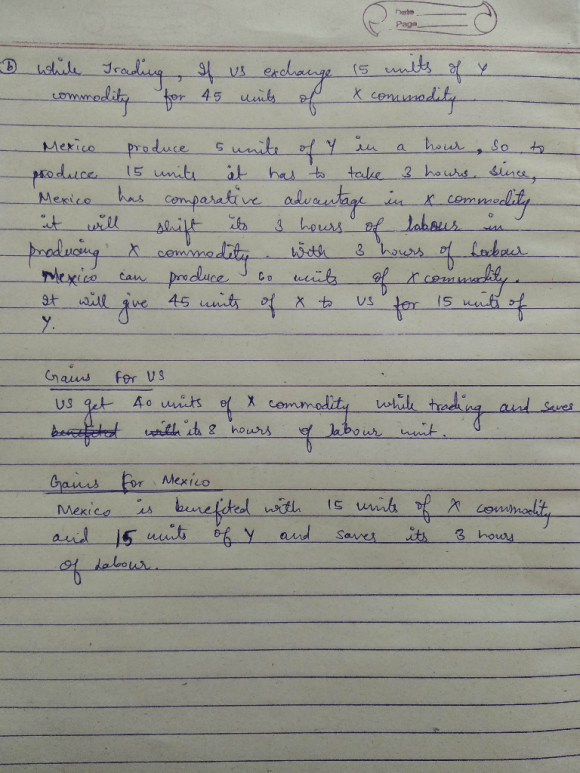 Date
Page
(b) While Trading, If US exchange 15 units of Y
commodity for 45 units of X commodity.
Mexico produce 5 units of Y in a hour, So to
produce 15 units it has to take 3 hours. Since,
Mexico has comparative advantage in X commodity
it will shift its 3 hours of labour in
producing X commodity. With 3 hours of Labour
Mexico can produce 60 units of X commodity.
It will give 45 units of X to US for 15 units of
Y.
Gains For US
US get 40 units of X commodity while trading and saves
benefited with its 8 hours of labour unit.
Gains for Mexico
Mexico is benefited with 15 units of X commodity
and 15 units of Y and saves its 3 hours
of Labour.